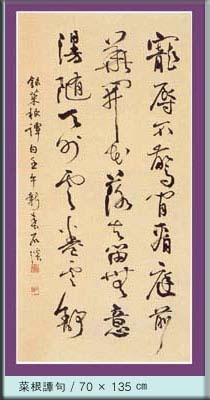 寵辱不驚閒看庭前
花開花落去留無意
漫隨天外雲卷雲舒
錄菜根譚句壬午新春石
菜根譚句 / 70 × 135 ㎝